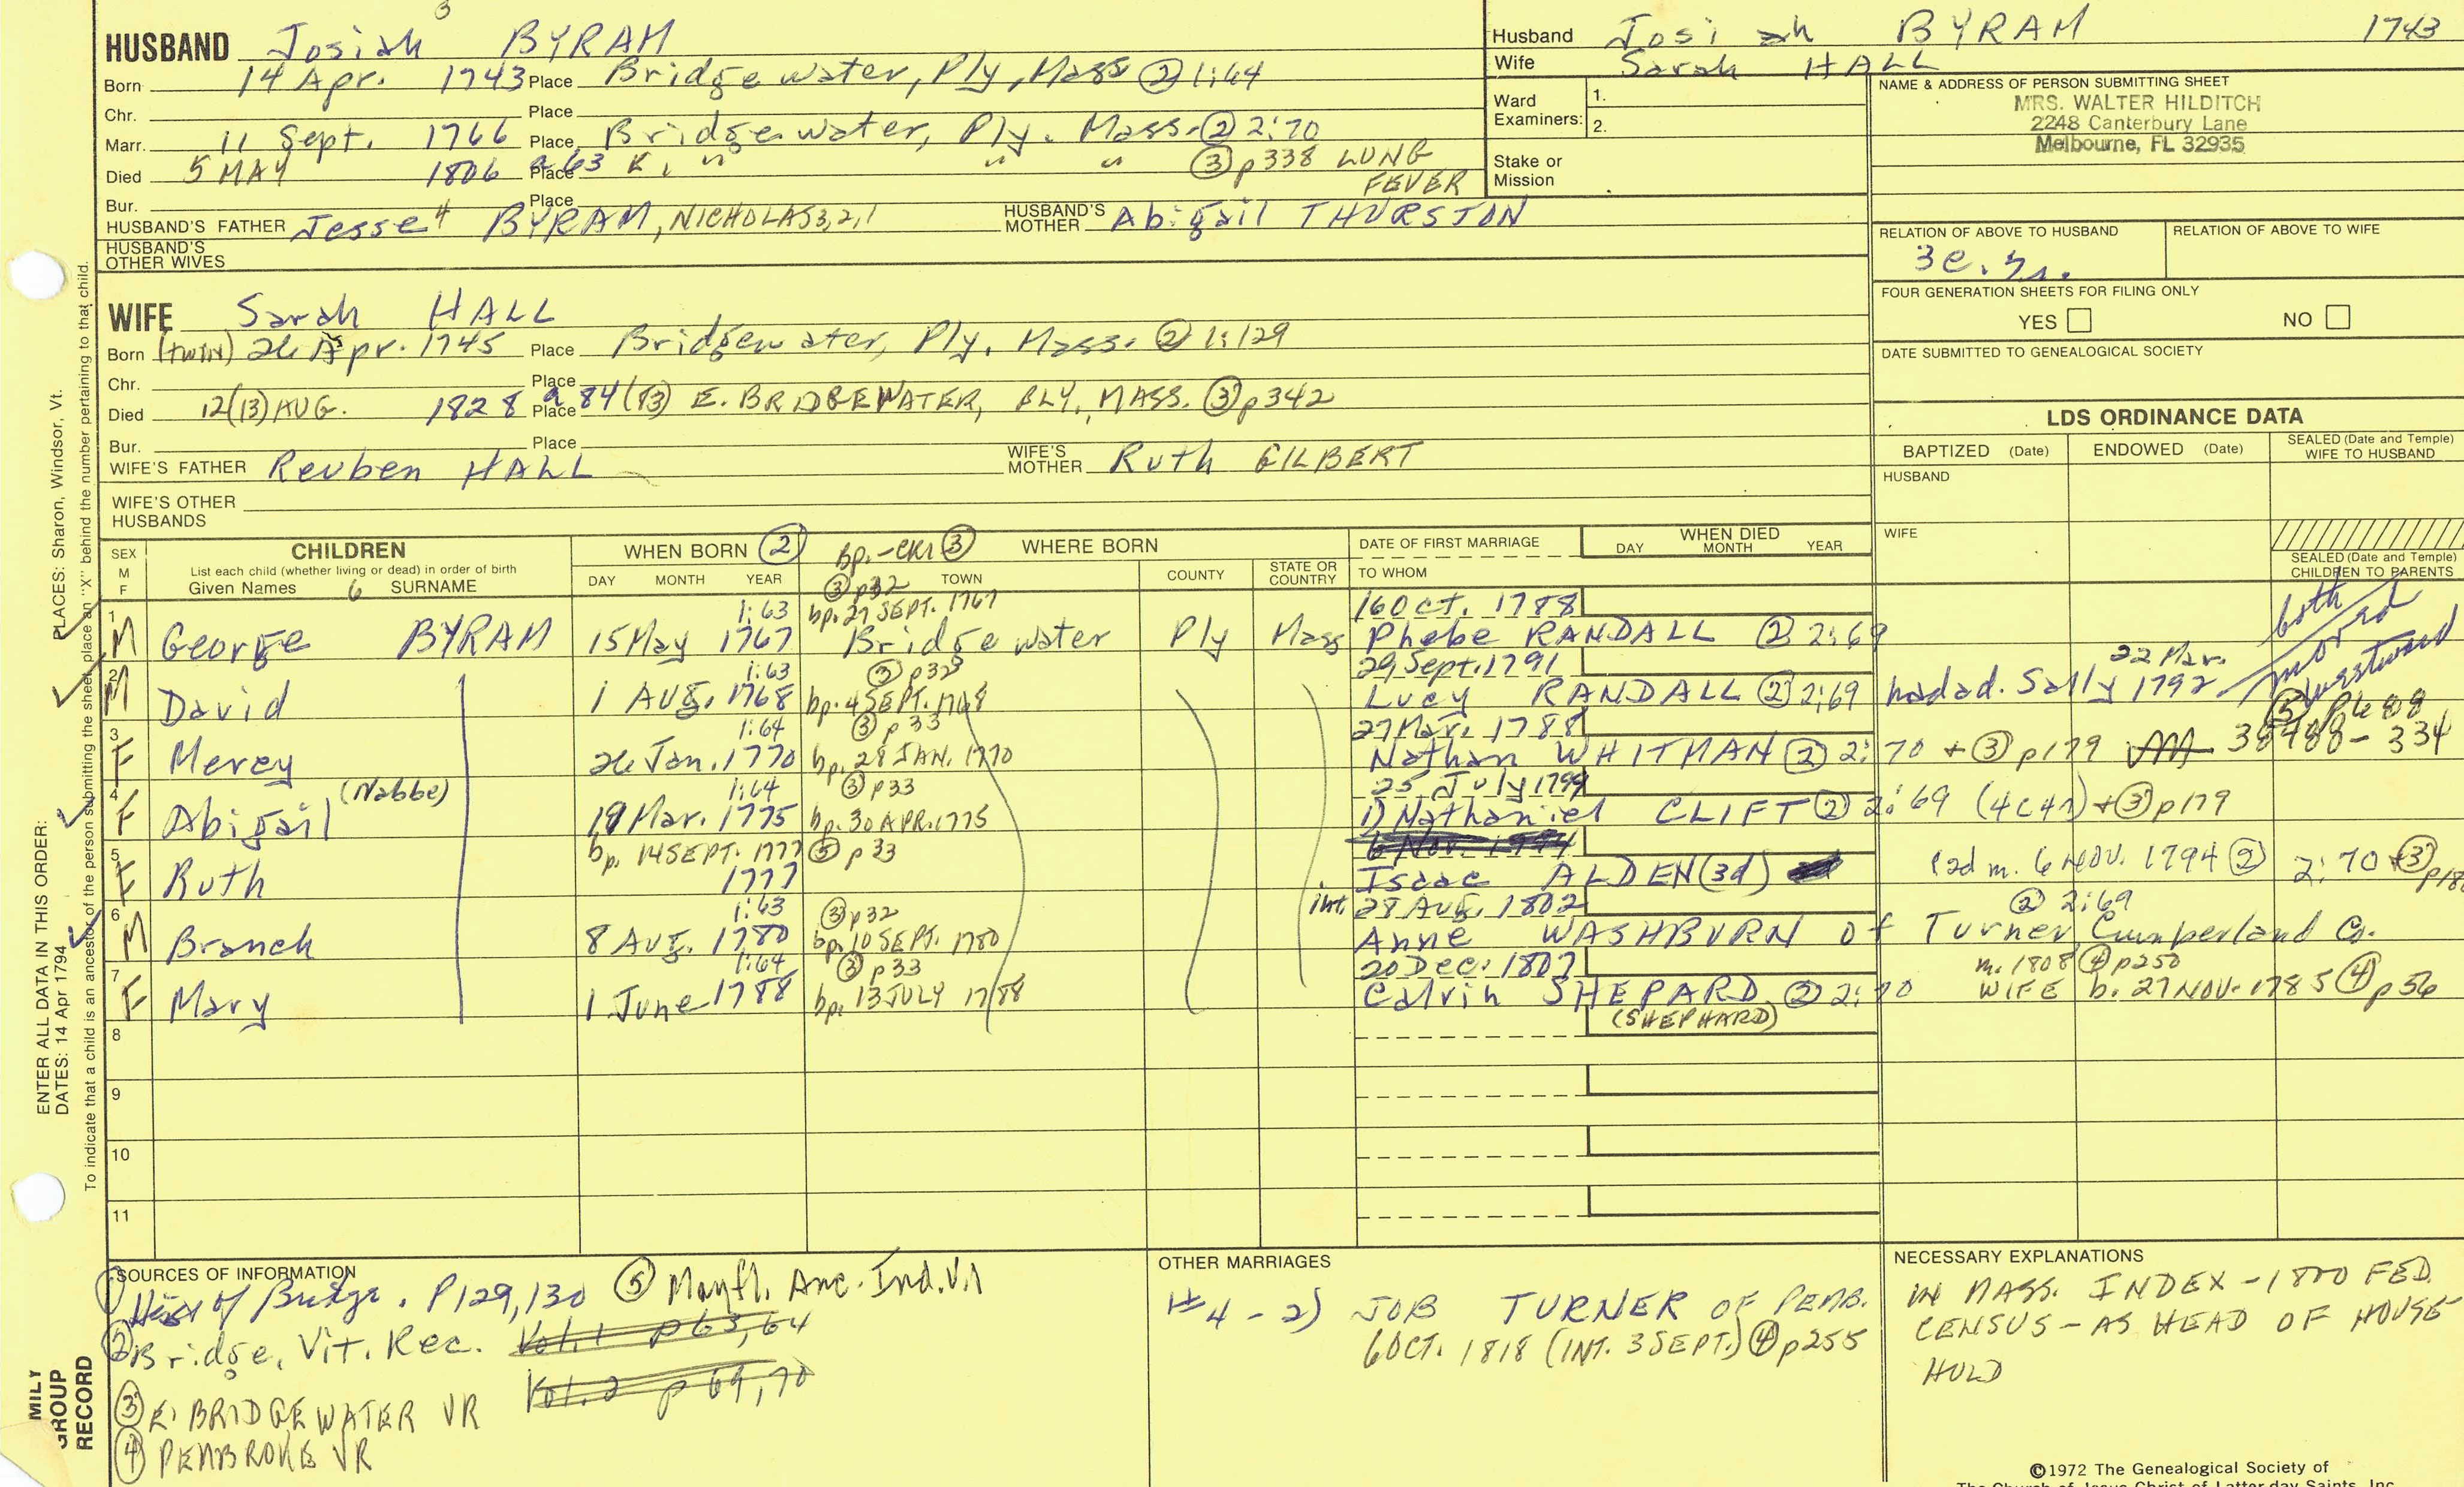 HUSBAND Josiah BYRAM
Born 14 Apr. 1743 Place Bridgewater, Ply, Mass ② 1:64
Chr. Place
Marr. 11 Sept. 1766 Place Bridgewater, Ply. Mass. ② 2:70
Died 5 MAY 1806 a 63 Place E. " " " ③ p338 LUNG FEVER
Bur. Place
HUSBAND'S FATHER Jesse 4 BYRAM, NICHOLAS 3, 2, 1 HUSBAND'S MOTHER Abigail THURSTON
HUSBAND'S OTHER WIVES
WIFE Sarah HALL
Born (twin) 26 Apr. 1745 Place Bridgewater, Ply. Mass. ② 1:129
Chr. Place
Died 12(13) AUG. 1828 Place a 84 (83) E. BRIDGEWATER, PLY, MASS. ③ p342
Bur. Place
WIFE'S FATHER Reuben HALL WIFE'S MOTHER Ruth GILBERT
WIFE'S OTHER HUSBANDS
Husband Josiah BYRAM 1743
Wife Sarah HALL
Ward Examiners: 1. 2.
Stake or Mission
NAME & ADDRESS OF PERSON SUBMITTING SHEET
MRS. WALTER HILDITCH
2248 Canterbury Lane
Melbourne, FL 32935
RELATION OF ABOVE TO HUSBAND RELATION OF ABOVE TO WIFE
FOUR GENERATION SHEETS FOR FILING ONLY
YES NO
DATE SUBMITTED TO GENEALOGICAL SOCIETY
LDS ORDINANCE DATA
BAPTIZED (Date) ENDOWED (Date) SEALED (Date and Temple) WIFE TO HUSBAND
HUSBAND
WIFE
SEALED (Date and Temple) CHILDREN TO PARENTS
SEX M F CHILDREN List each child (whether living or dead) in order of birth Given Names 6 SURNAME
WHEN BORN ② DAY MONTH YEAR
bp. - CR1 ③ WHERE BORN TOWN COUNTY STATE OR COUNTRY
DATE OF FIRST MARRIAGE TO WHOM
WHEN DIED DAY MONTH YEAR
1:63 ③ p32 bp. 27 SEPT. 1767 16 Oct. 1788
1 M George BYRAM 15 May 1767 Bridgewater Ply Mass Phebe RANDALL ② 2:69
both moved westward
1:63 ③ p32 29 Sept. 1791
2 M David 1 AUG. 1768 bp. 4 SEPT. 1768 Lucy RANDALL ② 2:69 had ad. Sally 22 Mar. 1792
1:64 ③ p33 27 Mar. 1788
3 F Mercy 26 Jan. 1770 bp. 28 JAN. 1770 Nathan WHITMAN ② 2:70 + ③ p179
1:64 ③ p33 25 July 1799
4 F Abigail (Nabbe) 19 Mar. 1775 bp. 30 APR. 1775 1) Nathaniel CLIFT ② 2:69 + ③ p179
bp. 14 SEPT. 1777 ③ p33 6 Nov. 1794
5 F Ruth 1777 Isaac ALDEN (3d) m. 6 NOV. 1794 ② 2:70 + ③
1:63 ③ p32 int. 28 AUG. 1802 ② 2:69
6 M Branch 8 AUG. 1780 bp. 10 SEPT. 1780 Anne WASHBURN of Turner Cumberland Co.
1:64 ③ p33 20 Dec. 1807 m. 1808 ④ p250
7 F Mary 1 June 1788 bp. 13 JULY 1788 Calvin SHEPARD ② 2:70 WIFE b. 27 NOV. 1785 ④ p56
(SHEPHARD)
8
9
10
11
SOURCES OF INFORMATION
① Hist of Bridge. P129,130 ⑤ Mayfl. Anc. Ind. V.1
② Bridge. Vit. Rec. Vol. 1 p 63, 64
Vol. 2 p 69, 70
③ E. BRIDGEWATER VR
④ PEMBROKE VR
OTHER MARRIAGES
#4 - 2) JOB TURNER OF PEMB.
6 OCT. 1818 (INT. 3 SEPT.) ④ p255
NECESSARY EXPLANATIONS
IN MASS. INDEX - 1800 FED
CENSUS - AS HEAD OF HOUSE
HOLD
©1972 The Genealogical Society of
The Church of Jesus Christ of Latter-day Saints, Inc.
ENTER ALL DATA IN THIS ORDER: PLACES: Sharon, Windsor, Vt.
DATES: 14 Apr 1794
To indicate that a child is an ancestor of the person submitting the sheet, place an "X" behind the number pertaining to that child.
MILY GROUP RECORD